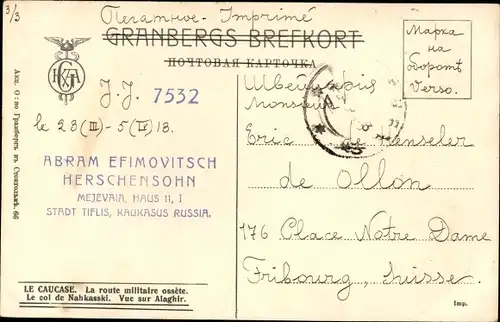 3/3
Печатное - Imprimé
GRANBERGS BREFKORT
ПОЧТОВАЯ КАРТОЧКА
Марка
на
обороте
Verso.
J.J. 7532
le 23 (III) - 5 (IV) 13.
ABRAM EFIMOVITSCH
HERSCHENSOHN
MEJEVAIA, HAUS 11, I
STADT TIFLIS, KAUKASUS RUSSIA.
Акц. О-во Гранбергъ въ Стокгольмѣ. 66
Швейцарія
Monsieur
Eric de Henseler
de Ollon
176 Place Notre Dame
Fribourg, Suisse.
LE CAUCASE. La route militaire ossète.
Le col de Nahkasski. Vue sur Alaghir.
Imp.